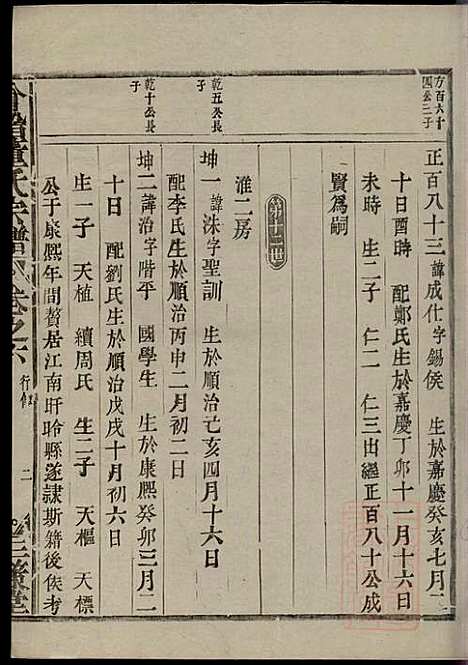 方百六十
四公二子
正百八十三 諱成仕字錫侯 生於嘉慶癸亥七月二
十日酉時 配鄭氏生於嘉慶丁卯十一月十六日
未時 生二子 仁二 仁三出繼正百八十公成
賢為嗣
第十二世
淮二房
乾五公長
子
坤一 諱洙字聖訓 生於順治己亥四月十六日
配李氏生於順治丙申二月初二日
乾十公長
子
坤二 諱治字階平 國學生 生於康熙癸卯三月二
十日 配劉氏生於順治戊戌十月初六日
生一子 天植 續周氏 生二子 天樞 天標
公于康熙年間贅居江南盱眙縣遂隸斯籍後俟考
董氏宗譜 卷之六 行傳 二 三策堂